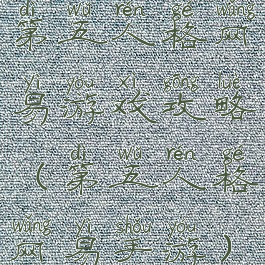 dì wǔ rén gé wǎng
第五人格网
yì yóu xì gōng lüè
易游戏攻略
dì wǔ rén gé
（第五人格
wǎng yì shǒu yóu
网易手游）